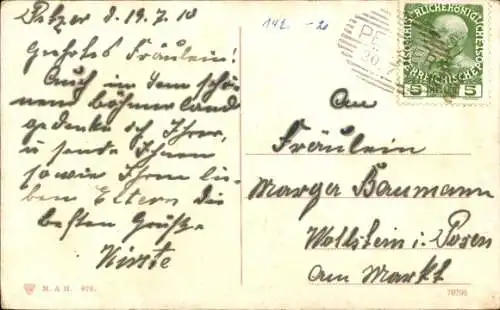 Petzer d. 19.7.10
Geehrtes Fräulein!
Auch im dem schö-
nen böhmerland
gedenke ich Ihrer,
u. sende Ihnen
sowie Ihren lie-
ben Eltern die
besten Grüße.
142 - 20
PE
20. 7
KAISERLICHEKÖNIGLICHE
ÖSTERREICHISCHE
5 5
An
Fräulein
Marga Baumann
Wollstein i. Posen
am Markt
M. A. H. 676.